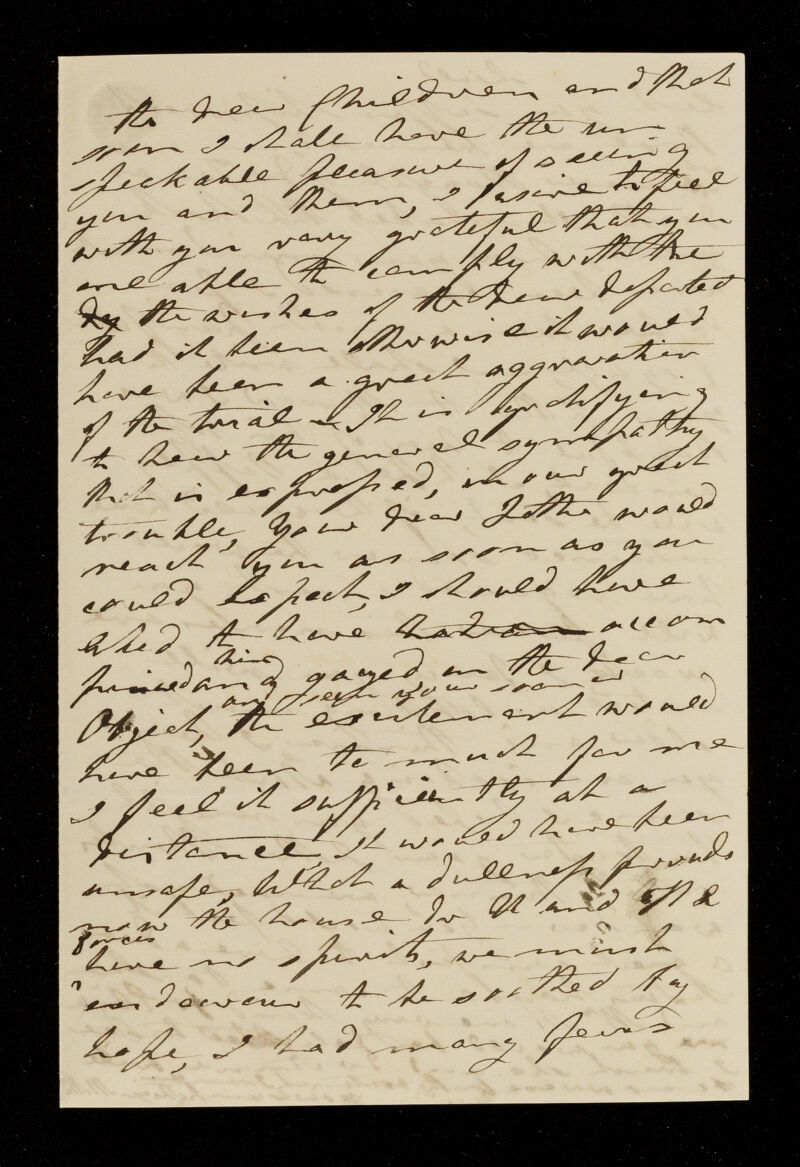 the dear Children and that
soon I shall have the un
speakable pleasure of seeing
you and them, I desire to feel
with you very grateful that you
are able to comply with the
by the wishes of the dear departed
had it been otherwise it would
have been a great aggravation
of the trial – It is gratifying
to hear the general sympathy
that is expressed, in our great
trouble, Your dear Father would
reach you as soon as you
could expect, I should have
liked to have accom
panied him and gazed on the dear
and seen your
Object, the excitement would
have been to much for me
I feel it sufficiently at a
distance, it would have been
unsafe, What a dullness pervades
now the house Dr U and
have no spirits, we must
endeavour to be soothed by
hope, I had many fears